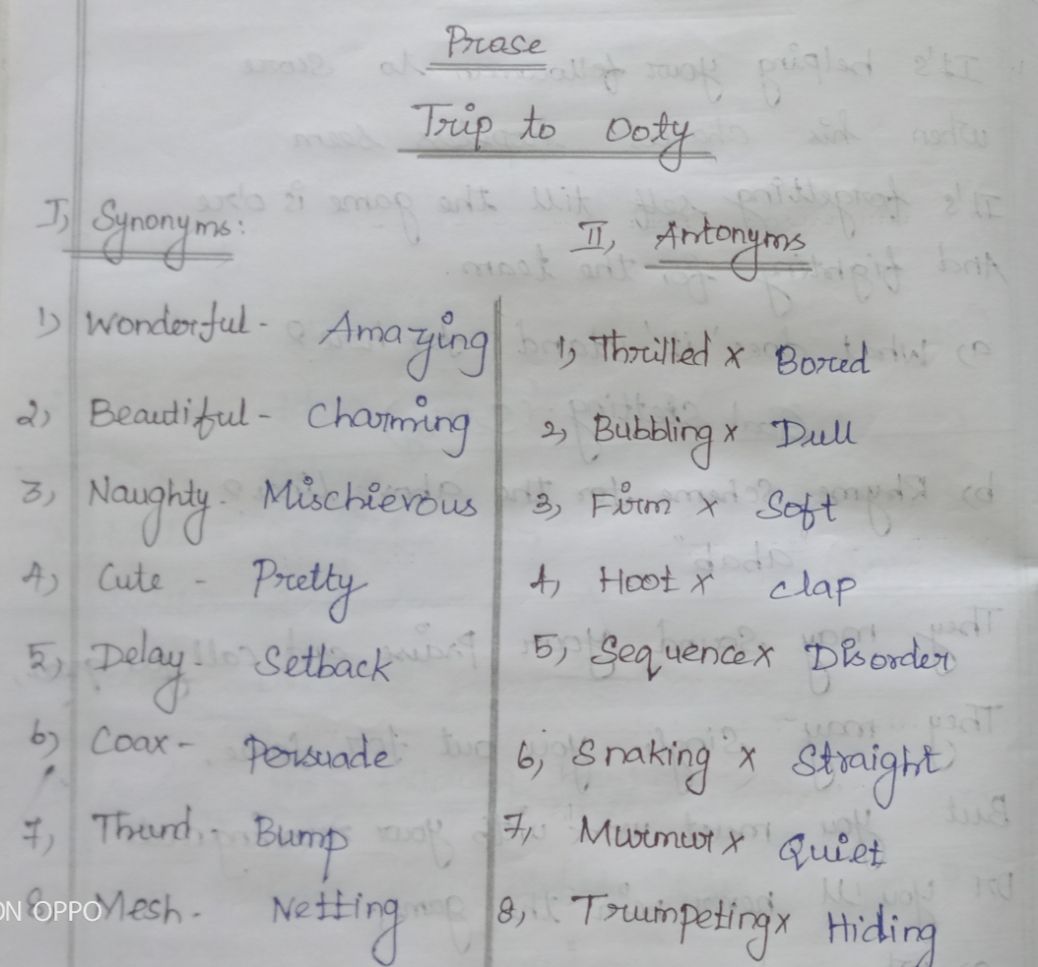 Prose
Trip to Ooty
I, Synonyms:
1) Wonderful - Amazing
2) Beautiful - Charming
3) Naughty - Mischievous
4) Cute - Pretty
5) Delay - Setback
6) Coax - Persuade
7) Thund - Bump
8) Mesh - Netting
II, Antonyms
1) Thrilled x Bored
2) Bubbling x Dull
3) Firm x Soft
4) Hoot x Clap
5) Sequence x Disorder
6) Snaking x Straight
7) Murmur x Quiet
8) Trumpeting x Hiding
ON OPPO